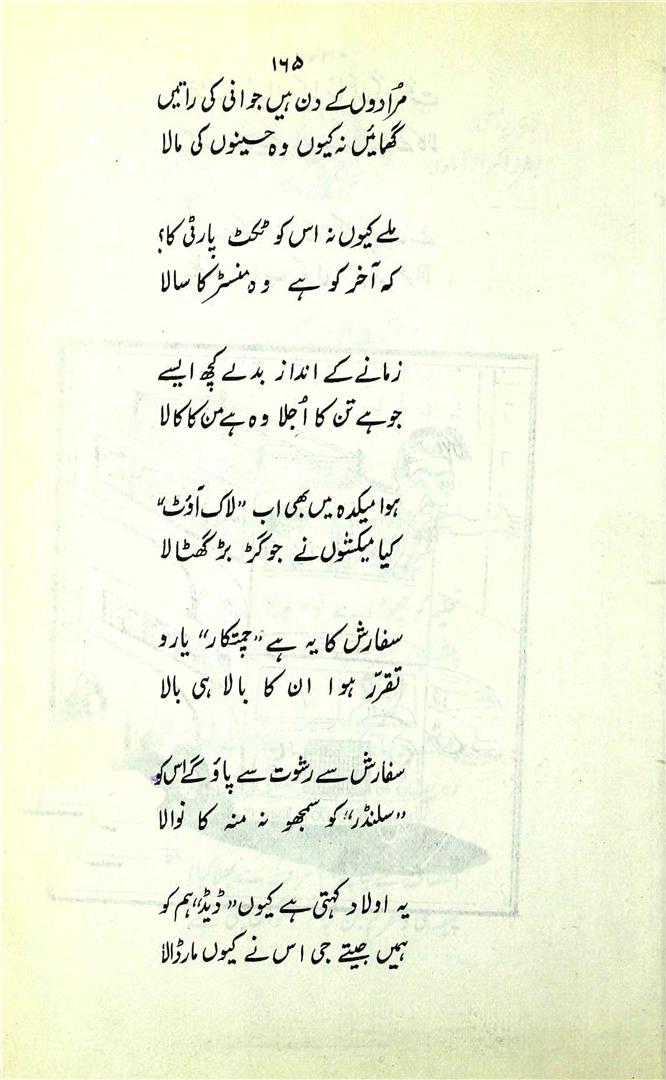 ۱۶۵
مرُادوں کے دن ہیں جوانی کی راتیں
گھمائیں نہ کیوں وہ حسینوں کی مالا
ملے کیوں نہ اس کو ٹکٹ پارٹی کا؟
کہ آخر کو ہے وہ منسٹر کا سالا
زمانے کے انداز بدلے کچھ ایسے
جو ہے تن کا اُجلا وہ ہے من کا کالا
ہوا میکدہ میں بھی اب "لاک آؤٹ"
کیا میکشوں نے جو گڑ بڑ گھٹالا
سفارش کا یہ ہے "چمتکار" یارو
تقرّر ہوا ان کا بالا ہی بالا
سفارش سے رشوت سے پاؤ گے اس کو
"سلنڈر" کو سمجھو نہ منہ کا نوالا
یہ اولاد کہتی ہے کیوں "ڈیڈ" ہم کو
ہمیں جیتے جی اس نے کیوں مار ڈالا